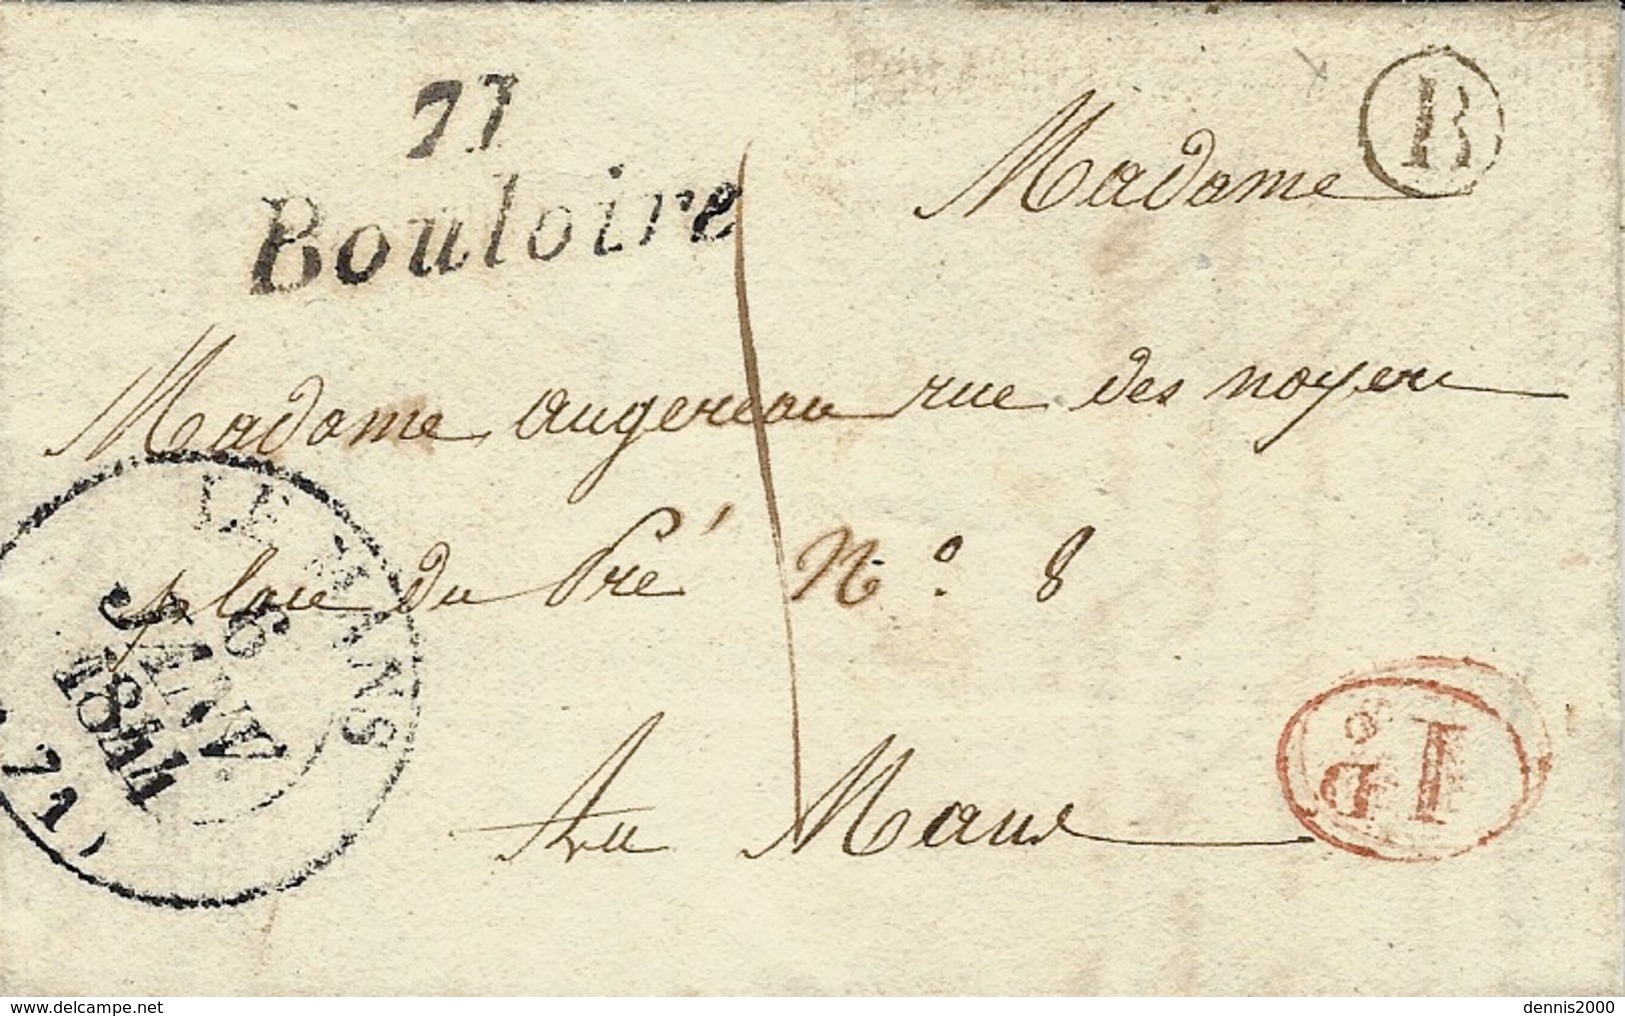 77
Bouloire
B
Madame
Madame augereau rue des noyers
place du Pré N° 8
Au Mans
LE MANS
6
JANV.
1844
(71)
1 D
delcampe.net
dennis2000